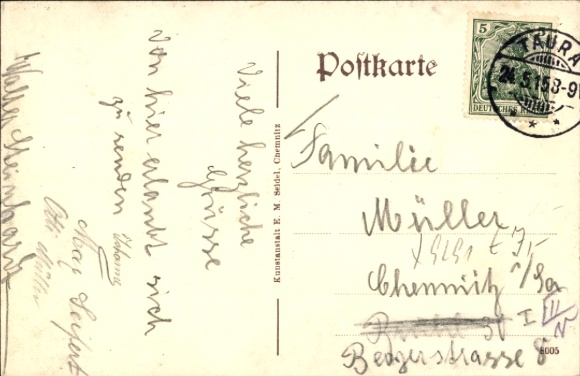 Postkarte
5
DEUTSCHES REICH
TAURA
24.5.15 8-9
Viele herzliche
Grüsse
von hier erlaubt sich
zu senden
Johanna
Max Seifert
Otto Müller
Walter
Kunstanstalt E. M. Seidel, Chemnitz
Familie
Müller
Chemnitz i/Sa
I
III
Bergerstrasse 8
8005